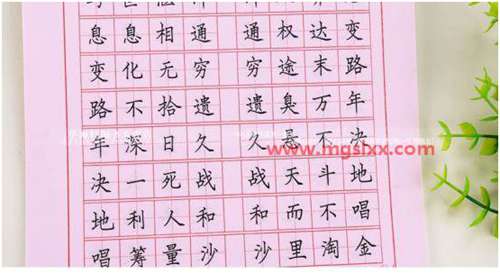 息息相通 通权达变
变化无穷 穷途末路
路不拾遗 遗臭万年
年深日久 久悬不决
www.mgslxx.com
决一死战 战天斗地
地利人和 和而不唱
唱筹量沙 沙里淘金